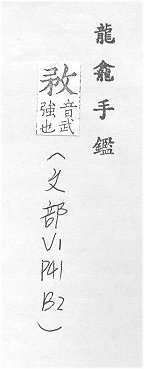 龍龕手鑑
音武
強也
（文部V1P41B2）